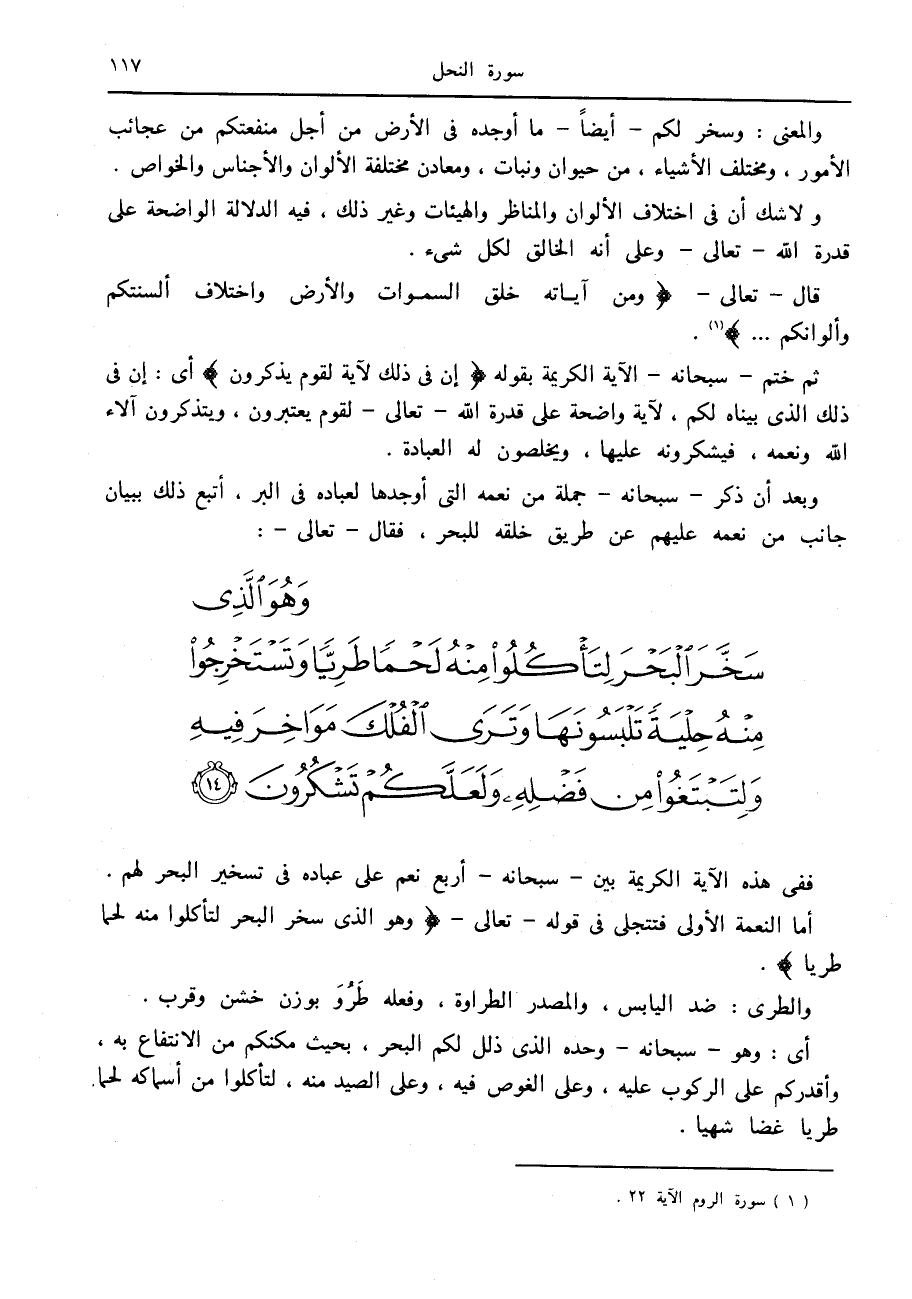 سورة النحل ١١٧
والمعنى : وسخر لكم - أيضاً - ما أوجده فى الأرض من أجل منفعتكم من عجائب
الأمور ، ومختلف الأشياء ، من حيوان ونبات ، ومعادن مختلفة الألوان والأجناس والخواص .
و لاشك أن فى اختلاف الألوان والمناظر والهيئات وغير ذلك ، فيه الدلالة الواضحة على
قدرة الله - تعالى - وعلى أنه الخالق لكل شىء .
قال - تعالى - ﴿ ومن آيـاته خلق السمـوات والأرض واختلاف ألسنتكم
وألوانكم ... ﴾(١) .
ثم ختم - سبحانه - الآية الكريمة بقوله ﴿ إن فى ذلك لآية لقوم يذكرون ﴾ أى : إن فى
ذلك الذى بيناه لكم ، لآية واضحة على قدرة الله - تعالى - لقوم يعتبرون ، ويتذكرون آلاء
الله ونعمه ، فيشكرونه عليها ، ويخلصون له العبادة .
وبعد أن ذكر - سبحانه - جملة من نعمه التى أوجدها لعباده فى البر ، أتبع ذلك ببيان
جانب من نعمه عليهم عن طريق خلقه للبحر ، فقال - تعالى - :
وَهُوَ ٱلَّذِى
سَخَّرَ ٱلْبَحْرَ لِتَأْكُلُوا۟ مِنْهُ لَحْمًا طَرِيًّا وَتَسْتَخْرِجُوا۟
مِنْهُ حِلْيَةً تَلْبَسُونَهَا وَتَرَى ٱلْفُلْكَ مَوَاخِرَ فِيهِ
وَلِتَبْتَغُوا۟ مِن فَضْلِهِۦ وَلَعَلَّكُمْ تَشْكُرُونَ ١٤
ففى هذه الآية الكريمة بين - سبحانه - أربع نعم على عباده فى تسخير البحر لهم .
أما النعمة الأولى فتتجلى فى قوله - تعالى - ﴿ وهو الذى سخر البحر لتأكلوا منه لحما
طريا ﴾ .
والطرى : ضد اليابس ، والمصدر الطراوة ، وفعله طَرُوَ بوزن خشن وقرب .
أى : وهو - سبحانه - وحده الذى ذلل لكم البحر ، بحيث مكنكم من الانتفاع به ،
وأقدركم على الركوب عليه ، وعلى الغوص فيه ، وعلى الصيد منه ، لتأكلوا من أسماكه لحما
طريا غضا شهيا .
( ١ ) سورة الروم الآية ٢٢ .